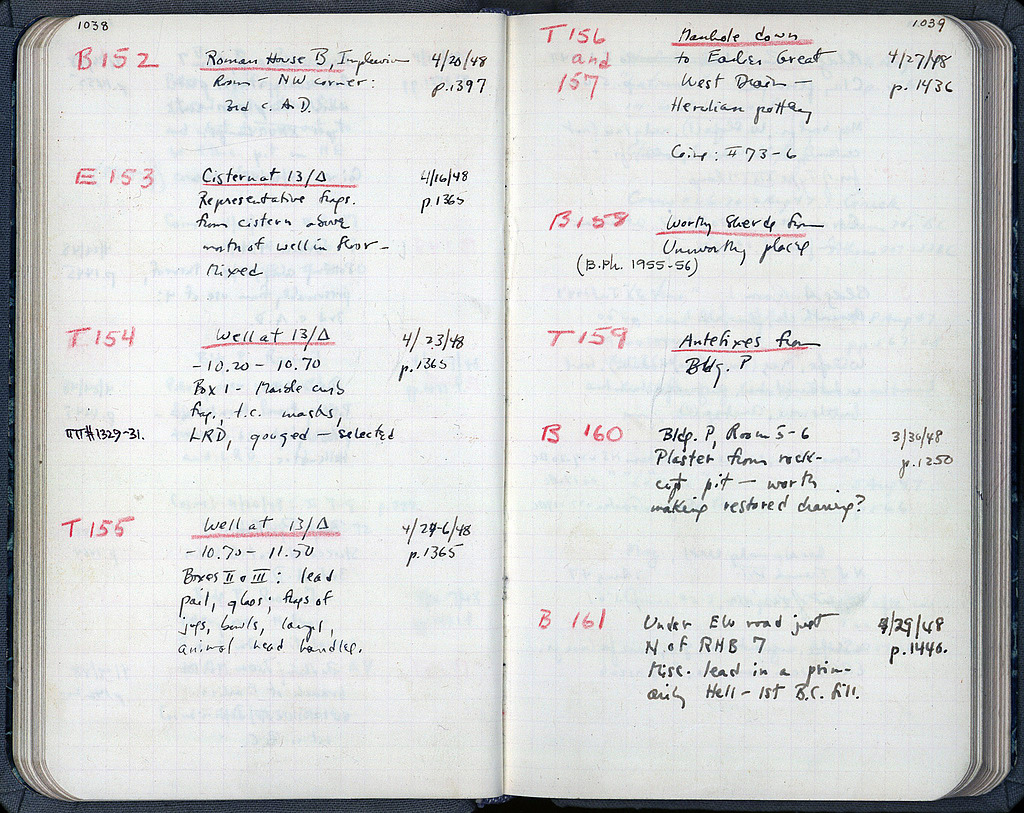 1038
B 152 Roman House B, Impluvium 4/20/48
Room - NW corner: p. 1397
3rd c. A.D.
E 153 Cistern at 13/Δ 4/16/48
Representative frags. p. 1365
from cistern above
north of well in floor -
Mixed
T 154 Well at 13/Δ 4/23/48
-10.20 - 10.70 p. 1365
Box I - Marble curb
frag., t.c. masks,
ΠΠ#1329-31. LRD, gouged - selected
T 155 Well at 13/Δ 4/24-6/48
-10.70 - 11.50 p. 1365
Boxes II + III: lead
pail, glass; frags of
jugs, bowls, lamps,
animal head handles.
1039
T 156 Manhole down
and to Earlier Great 4/27/48
157 West Drain - p. 1436
Herulian pottery
Coins: #73-6
B 158 Worthy sherds from
Unworthy places
(B.Ph. 1955-56)
T 159 Antefixes from
Bldg. P
B 160 Bldg. P, Room 5-6 3/30/48
Plaster from rock- p. 1250
cut pit - worth
making restored drawing?
B 161 Under E/W road just 4/29/48
N. of RHB 7 p. 1440.
Misc. lead in a prim-
arily Hell - 1st B.C. fill.